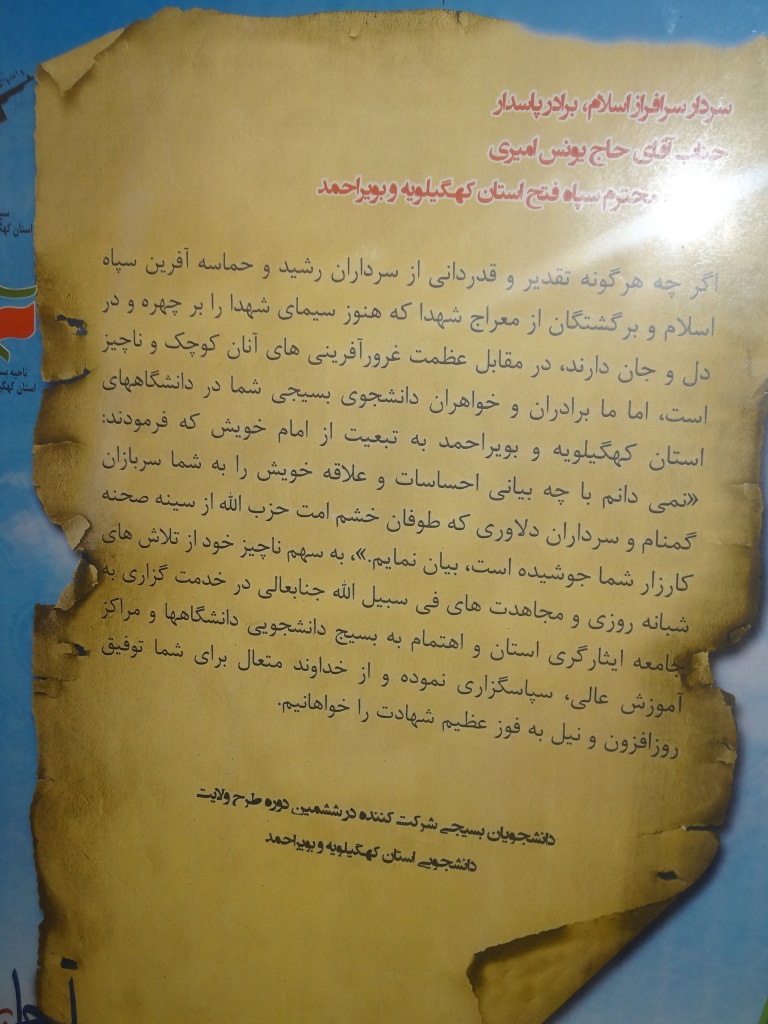 سردار سرافراز اسلام، برادر پاسدار
جناب آقای حاج یونس امیری
محترم سپاه فتح استان کهگیلویه و بویراحمد
اگر چه هرگونه تقدیر و قدردانی از سرداران رشید و حماسه آفرین سپاه
اسلام و برگشتگان از معراج شهدا که هنوز سیمای شهدا را بر چهره و در
دل و جان دارند، در مقابل عظمت غرورآفرینی های آنان کوچک و ناچیز
است، اما ما برادران و خواهران دانشجوی بسیجی شما در دانشگاههای
استان کهگیلویه و بویراحمد به تبعیت از امام خویش که فرمودند:
«نمی دانم با چه بیانی احساسات و علاقه خویش را به شما سربازان
گمنام و سرداران دلاوری که طوفان خشم امت حزب الله از سینه صحنه
کارزار شما جوشیده است، بیان نمایم.»، به سهم ناچیز خود از تلاش های
شبانه روزی و مجاهدت های فی سبیل الله جنابعالی در خدمت گزاری به
جامعه ایثارگری استان و اهتمام به بسیج دانشجویی دانشگاهها و مراکز
آموزش عالی، سپاسگزاری نموده و از خداوند متعال برای شما توفیق
روزافزون و نیل به فوز عظیم شهادت را خواهانیم.
دانشجویان بسیجی شرکت کننده در ششمین دوره طرح ولایت
دانشجویی استان کهگیلویه و بویراحمد
ناحیه
استان